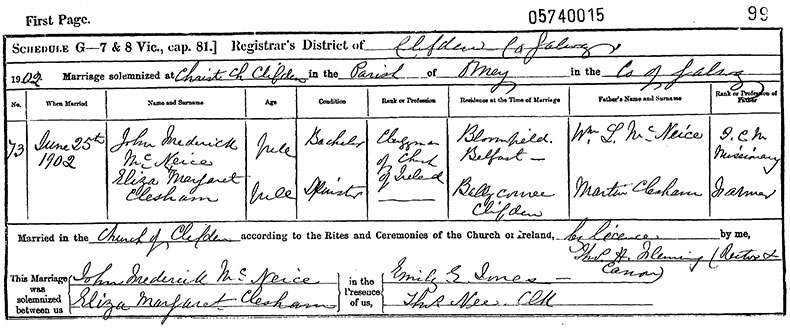 First Page.
05740015
99
SCHEDULE G—7 & 8 Vic., cap. 81.] Registrar's District of Clifden Co Galway
1902 Marriage solemnized at Christ Ch Clifden in the Parish of Omey in the Co of Galway
No. When Married Name and Surname Age Condition Rank or Profession Residence at the Time of Marriage Father's Name and Surname Rank or Profession of Father
73 June 25th 1902 John Frederick McNeice full Bachelor Clergyman of Church of Ireland Bloomfield. Belfast — Wm L. McNeice I.C.M Missionary
Eliza Margaret Clesham full Spinster Ballyconree Clifden Martin Clesham Farmer
Married in the Church of Clifden according to the Rites and Ceremonies of the Church of Ireland, by licence by me,
Thos H. Fleming (Rector & Canon)
This Marriage was solemnized between us
John Frederick McNeice
Eliza Margaret Clesham
in the Presence of us,
Emily G. Jones —
Thos Nee Clk